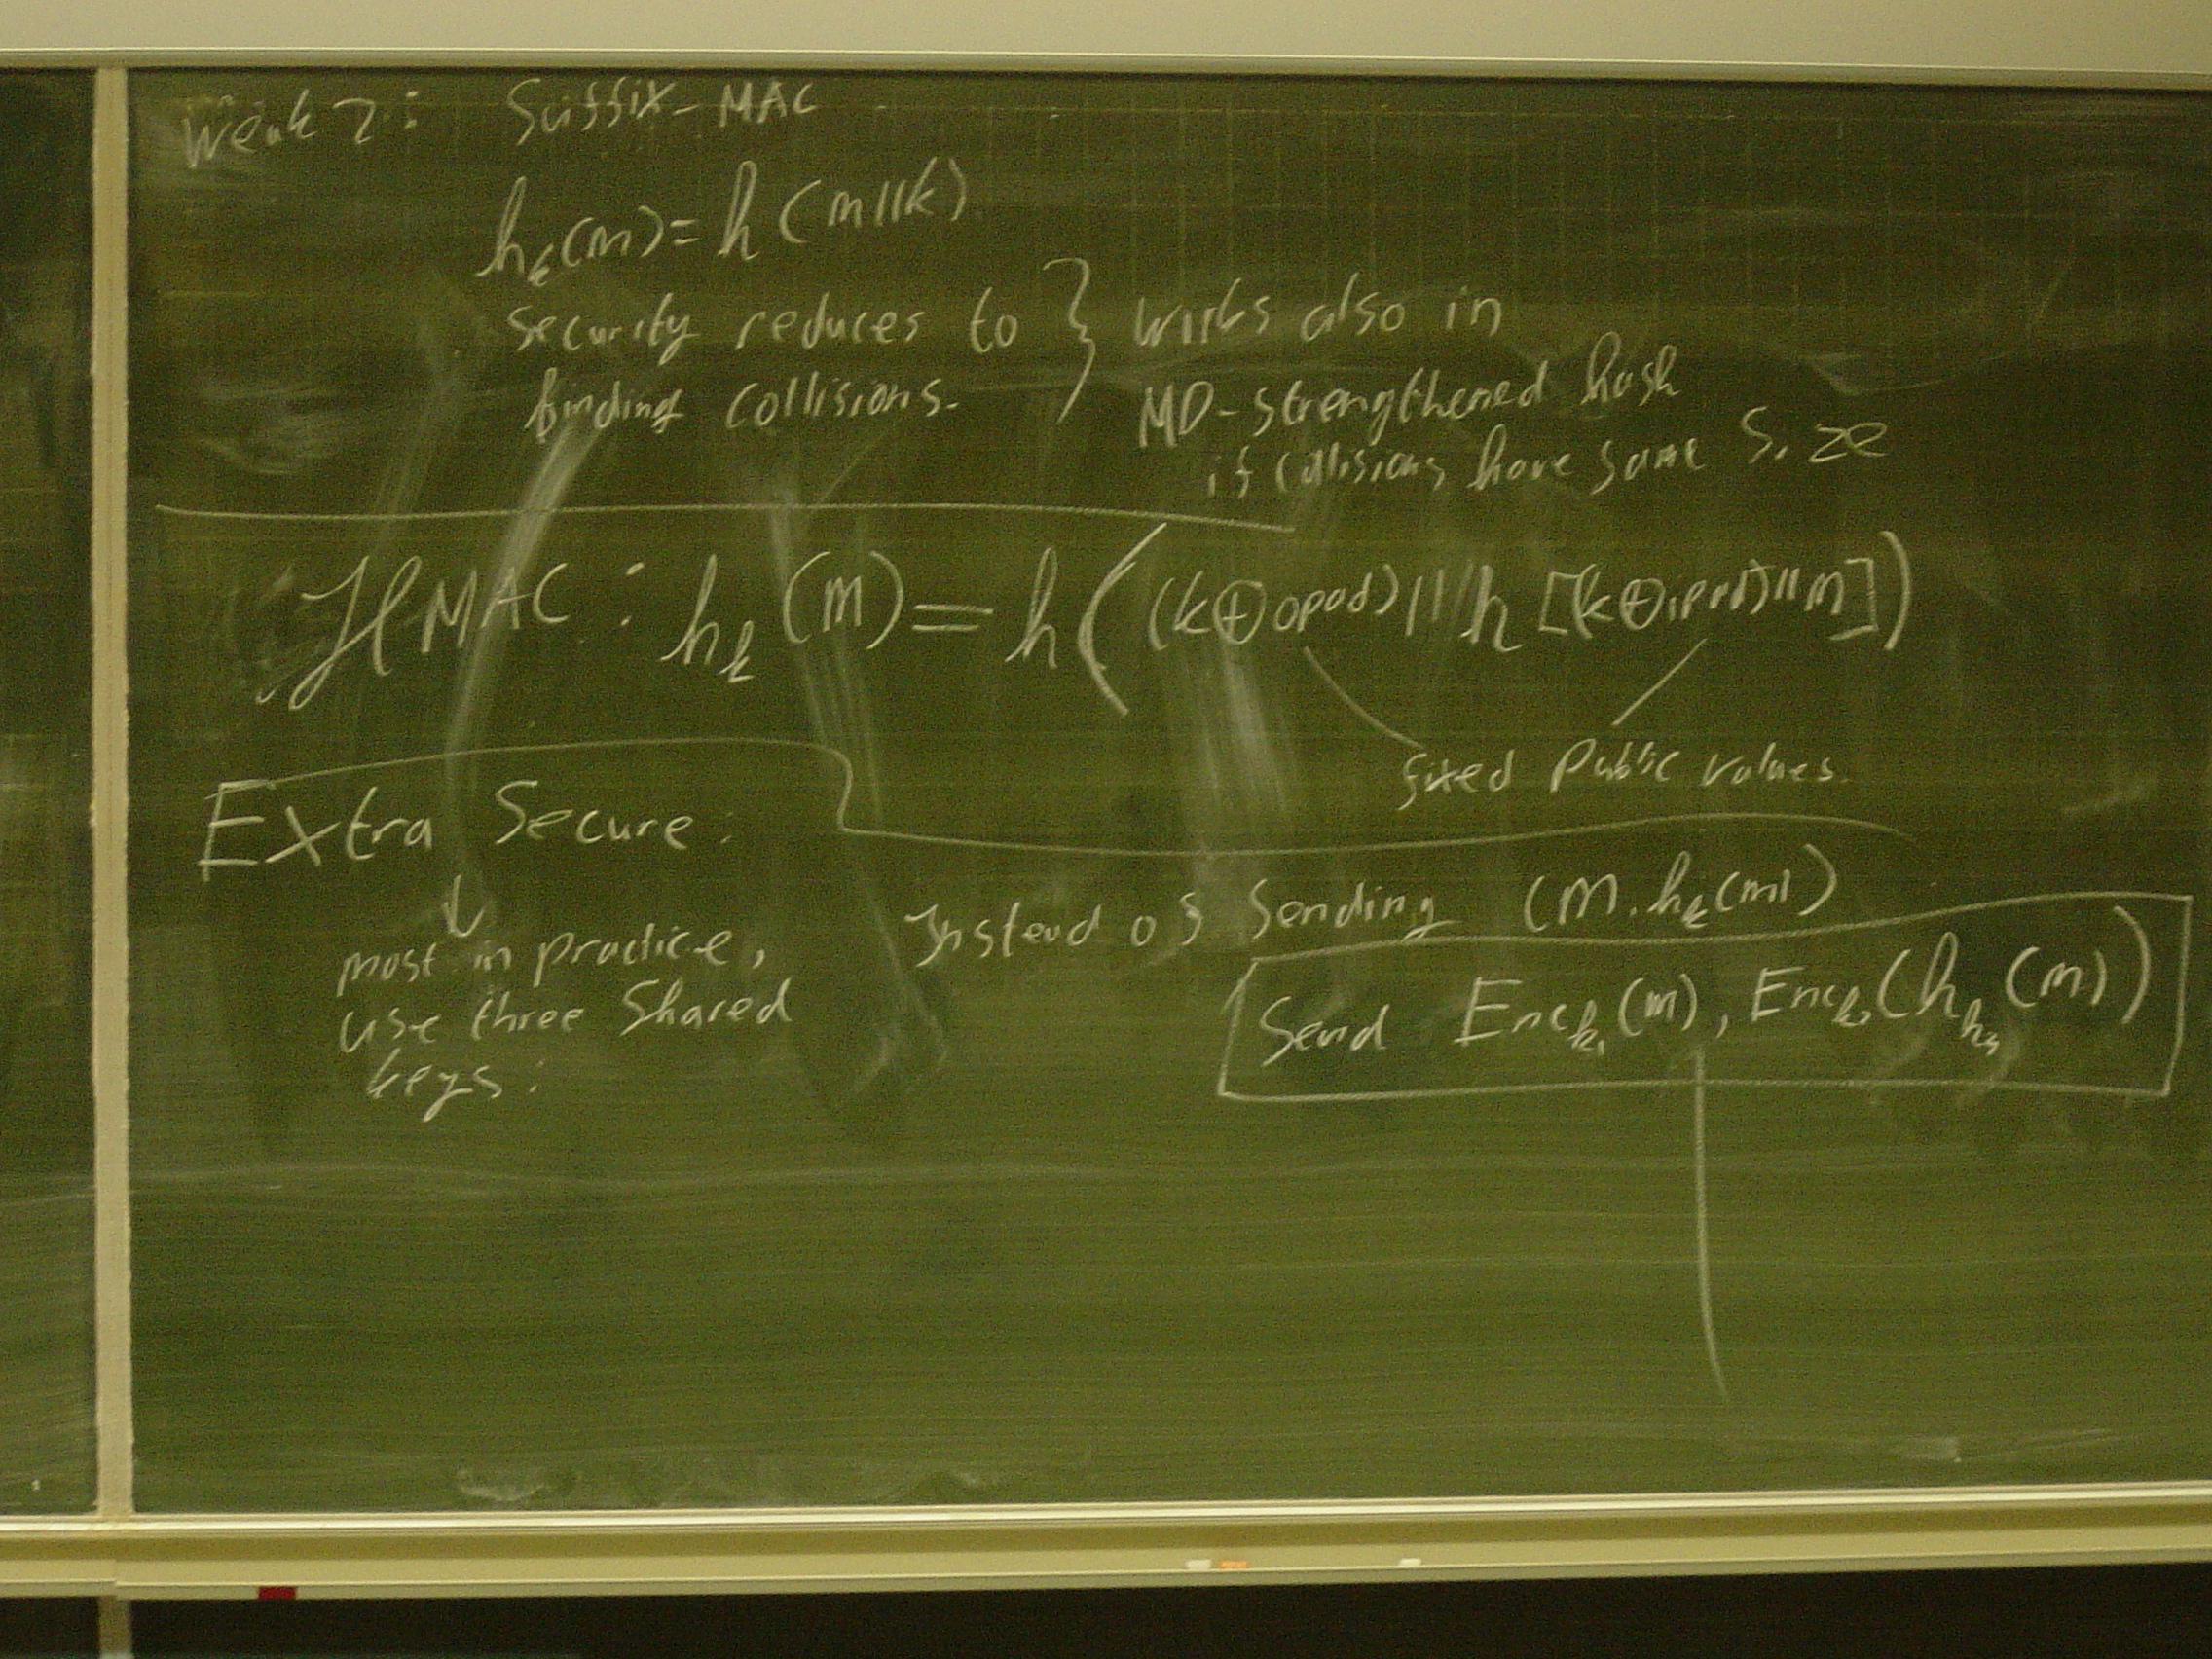 Weak 2: Suffix-MAC
hₖ(m)=h(m||k)
Security reduces to
finding collisions.
works also in
MD-strengthened hash
if collisions have same size
HMAC: hₖ(m) = h((k⊕opad)||h[k⊕ipad)||m])
fixed public values.
Extra Secure:
most in practice,
use three shared
keys:
Instead of sending (m, hₖ(m))
Send Encₖ₁(m), Encₖ₂(hₖ₃(m))